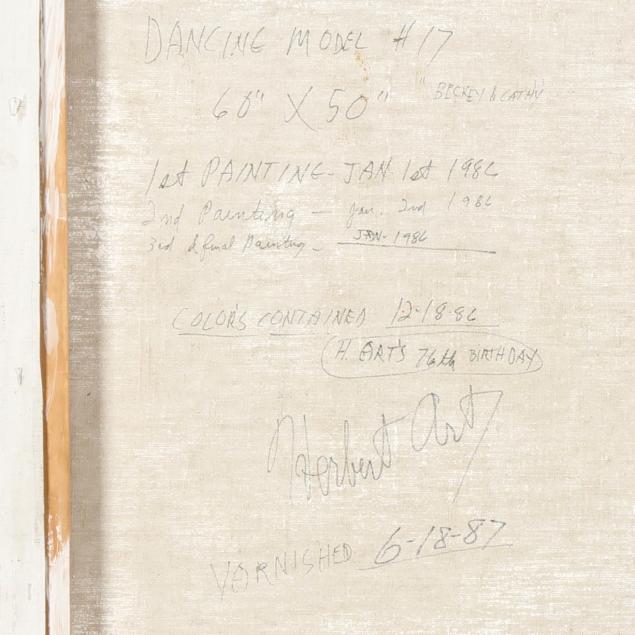 DANCING MODEL #17
60" X 50" "BECKEY & CATHY"
1st PAINTING - JAN 1st 1986
2nd Painting - Jan. 2nd 1986
3rd & final Painting - JAN - 1986
COLOR'S CONTAINED 12-18-86
H. ART'S 76th BIRTHDAY
Herbert Art
VARNISHED 6-18-87